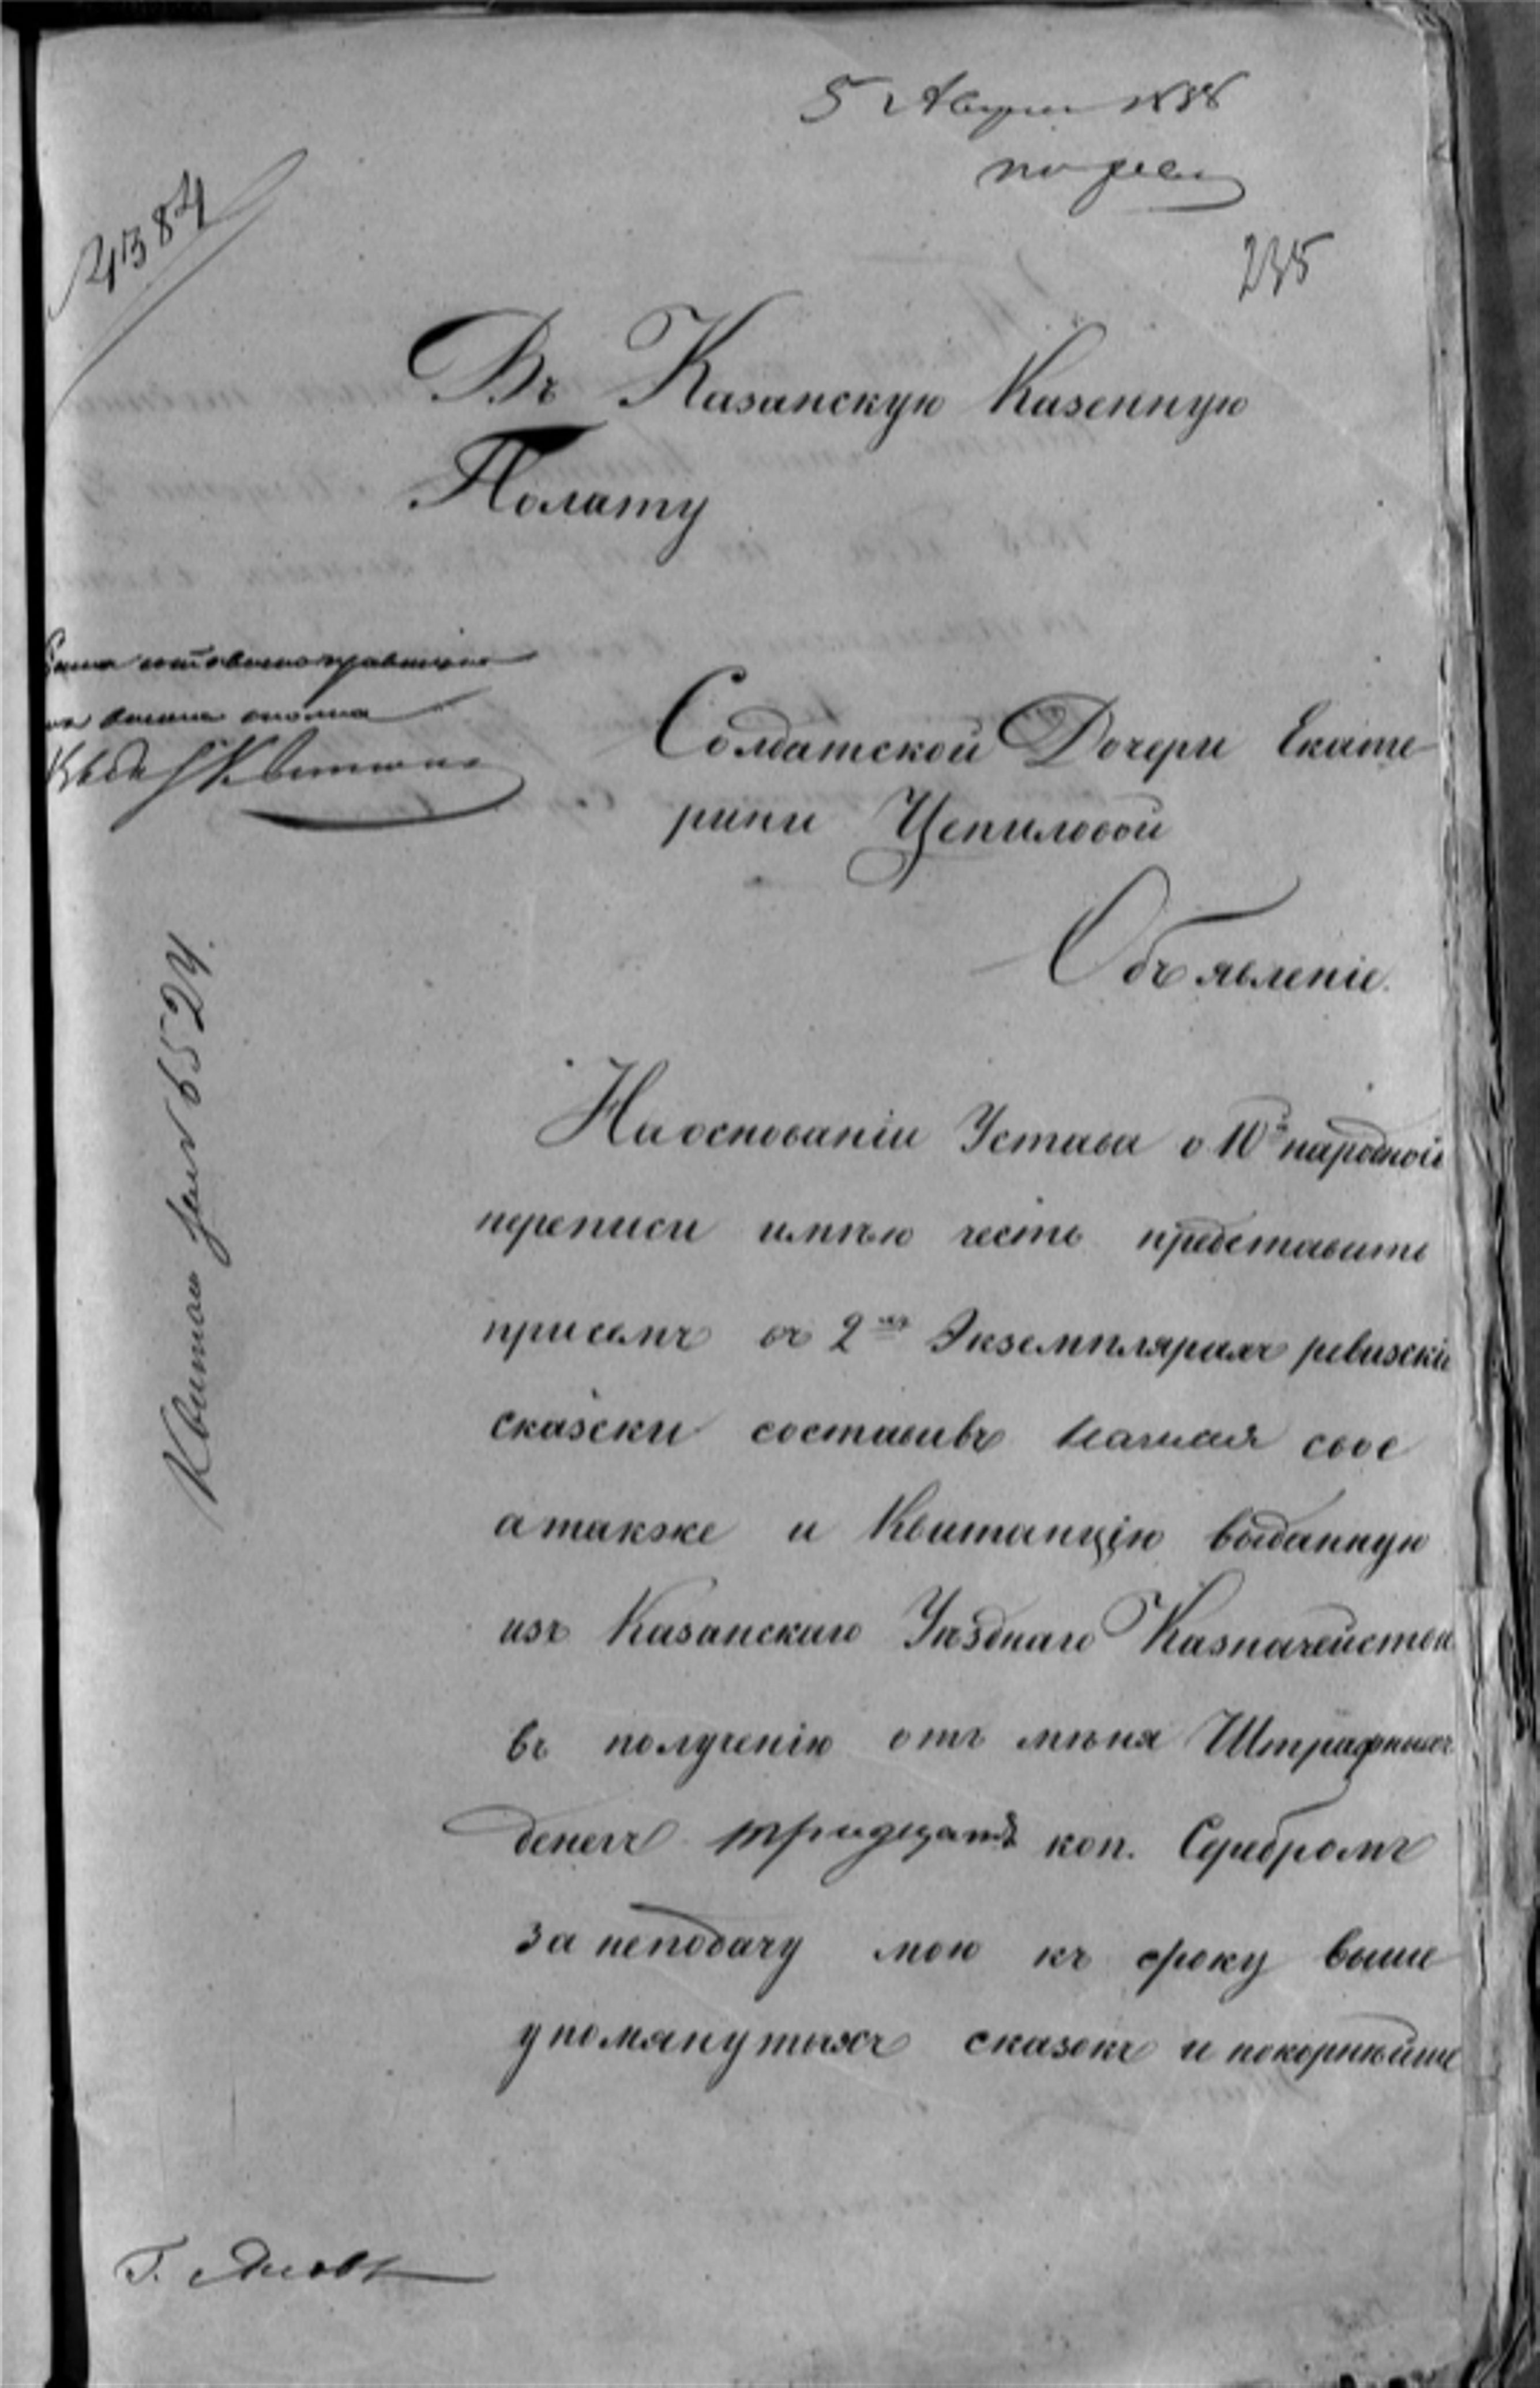 5 Августа 1858
4384
235
Въ Казанскую Казенную
Полату
Солдатской Дочери Екате-
рини Цепиловой
Объявленіе.
На основаніи Устава о 10й народной
переписи имѣю честь представить
присемъ въ 2хъ Экземплярахъ ревизскіе
сказски составивъ свое
а также и Квитанцію выданную
изъ Казанскаго Уѣзднаго Казначейства
въ полученію отъ мѣня Штрафныхъ
денегъ тридцать коп. Серебромъ
за неподачу мою къ сроку выше
упомянутыхъ сказокъ и покорнѣйше
6524.